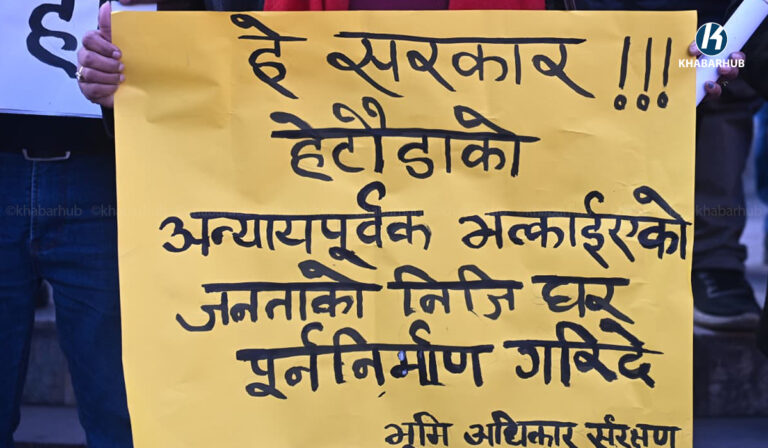 हे सरकार !!!
हेटौडाको
अन्यायपूर्वक भत्काईएको
जनताको निजि घर
पूर्ननिर्माण गरिदे
भूमि अधिकार संरक्षण
KHABARHUB
©khabarhub ©khabarhub ©khabarhub ©khabarhub ©khabarhub